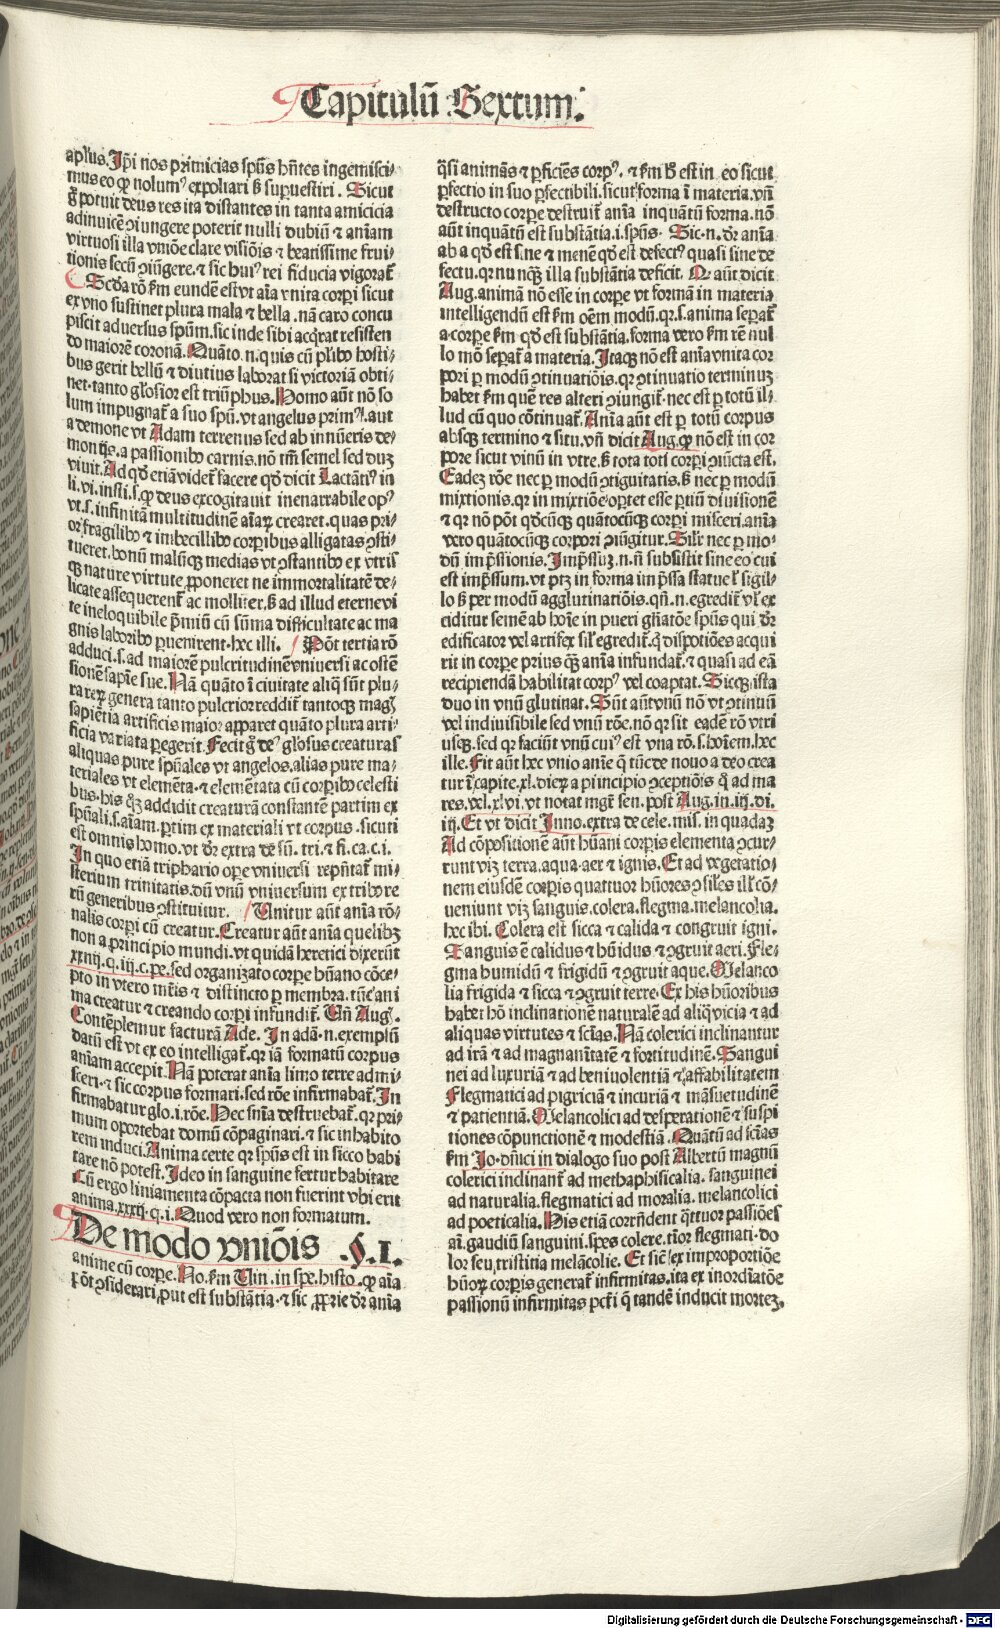 Capitulū Sextum.
apl'us. Ip̄i nos primicias sp̄us hn̄tes ingemisci/
mus eo ꝙ nolumꝰ expoliari ß supuestiri . Sicut
g̊ potuit deus res ita distantes in tanta amicicia
adinuicē ꝯiungere poterit nulli dubiū ⁊ aīam
virtuosi illa vniōe clare visiōis ⁊ beatissime frui/
tionis secū ꝯiūgere. ⁊ sic huiꝰ rei fiducia vigorat᷑
Scd̄a rō ßm eundē est vt aīa vnita corpi sicut
ex vno sustinet plura mala ⁊ bella . nā caro concu
piscit aduersus spūm. sic inde sibi acq̄rat resisten
do maiorē coronā. Quāto .n. quis cū plibꝰ hosti/
bus gerit bellū ⁊ diutius laborat si victoriā obti/
net. tanto gl'osior est triūphus. Homo aūt nō so
lum impugnat᷑ a suo spū. vt angelus primꝰ. aut
a demone vt Adam terrenus sed ab innūeris de/
monijs. a passionibꝰ carnis. nō tm̄ semel sed duꝫ
viuit. Ad qd̄ etiā videt᷑ facere qd̄ dicit Lactātiꝰ in
li. vi. insti. s. ꝙ deus excogitauit inenarrabile opꝰ
vt. s. infinitā multitudinē aīaꝝ crearet. quas pri/
or fragilibꝰ ⁊ imbecillibꝰ corpibus alligatas ꝯsti/
tueret. bonū malūqꝫ medias vt ꝯstantibꝰ ex vtris
qꝫ nature virtute pponeret ne immortalitatē de/
licate assequerent᷑ ac molliter. ß ad illud eterne vi
te ineloquibile p̄miū cū sūma difficultate ac ma
gnis laboribꝰ puenirent. hec illi. Pōt tertia rō
adduci. s. ad maiorē pulcritudinē vniuersi ac ostē
sionē sapiētie sue. Nā quāto ī ciuitate aliq̄ sūt plu/
ra reꝝ genera tanto pulcrior reddit᷑ tantoqꝫ magꝭ
sapiētia artificis maior apparet quāto plura arti/
ficia variata pegerit. Fecit g̊ deꝰ gl'osus creaturas
aliquas pure spūales vt angelos. alias pure ma/
teriales vt elemēta. ⁊ elemētata cū corpibꝰ celesti
bus. his qꝫ addidit creaturā constantē partim ex
spūali. s. aīam. ptim ex materiali vt corpus . sicuti
est omnis homo. vt dr̄ extra de sū. tri. ⁊ fi. ca. c. i.
In quo etiā triphario ope vniuersi rep̄ntat᷑ mi/
sterium trinitatis. dū vnū vniuersum ex tribꝰ re
rū generibus ꝯstituitur. Unitur aūt aīa rō/
nalis corpi cū creatur. Creatur aūt aīa quelibꝫ
non a principio mundi. vt quidā heretici dixerūt
xxiiij. q. iij. c. pe. sed organizato corpe hūano cōce/
pto in vtero mr̄is ⁊ distincto p membra. tūc ani
ma creatur ⁊ creando corpi infundit᷑. Un̄ Aug.
Contēplemur facturā Ade. In adā .n. exemplū
datū est vt ex eo intelligat᷑. qr iā formatū corpus
aīam accepit. Nā poterat aīa limo terre admi/
sceri. ⁊ sic corpus formari. sed rōe infirmabat᷑. In
firmabatur glo. i. rōe. Hec sn̄ia destruebat᷑. qr pri/
mum oportebat domū cōpaginari. ⁊ sic inhabito
rem induci. Anima certe qr sp̄us est in sicco habi
tare nō potest. Ideo in sanguine fertur habitare
Cū ergo liniamenta cōpacta non fuerint vbi erit
anima. xxxij. q. i. Quod vero non formatum.
De modo vniōis .§.I.
anime cū corpe. No. ßm Uin. in spe. histo. ꝙ aīa
pōt ꝯsiderari, put est substātia. ⁊ sic pprie dr̄ anīa
q̄si animās ⁊ pficiēs corpꝰ. ⁊ ßm ß est in eo sicut
pfectio in suo pfectibili. sicut forma ī materia. vn̄
destructo corpe destruit᷑ anīa inquātū forma. nō
aūt inquātū est substātia. i. sp̄us. Sic. n. dr̄ anīa
ab a qd̄ est s. ne ⁊ menē qd̄ est defectꝰ quasi sine de
fectu. qr nunqꝫ illa substātia deficit. Q aūt dicit
Aug. animā nō esse in corpe vt formā in materia
intelligendū est ßm oēm modū. qr. s. anima sepat᷑
a corpe ßm qd̄ est substātia. forma vero ßm rē nul
lo mō sepat᷑ a materia. Itaqꝫ nō est anīa vnita cor
pori p modū ꝯtinuatiōis. qr ꝯtinuatio terminuꝫ
habet ßm quē res alteri ꝯiungit᷑. nec est p totū il/
lud cū quo cōtinuat᷑. Anīa aūt est p totū corpus
absqꝫ termino ⁊ situ. vn̄ dicit Aug. ꝙ nō est in cor
pore sicut vinū in vtre. ß tota toti corpi ꝯiūcta est.
Eadeꝫ rōe nec p modū ꝯtiguitatis. ß nec p modū
mixtionis. qr in mixtiōe oꝑtet esse ptiū diuisionē
⁊ qr nō pōt qd̄cūqꝫ quātocūqꝫ corpi misceri. anīa
vero quātocūqꝫ corpori ꝯiūgitur. Sil'r nec p mo/
dū imp̄ssionis. Imp̄ssuꝫ. n. nō subsistit sine eo cui
est imp̄ssum. vt ptꝫ in forma imp̄ssa statue l' sigil/
lo ß per modū agglutinatiōis. qn̄. n. egredit᷑ vl' ex
ciditur semē ab hoīe in pueri gn̄atōe sp̄us qui dr̄
edificator vel artifex sil' egredit᷑. q̄ dispotiōes acqui
rit in corpe prius qꝫ anīa infundat᷑. ⁊ quasi ad eā
recipiendā habilitat corpꝰ vel coaptat. Sicqꝫ ista
duo in vnū glutinat. Sūt aūt vnū nō vt ꝯtinuū
vel indiuisibile sed vnū rōe. nō qr sit eadē rō vtri
usqꝫ. sed qr faciūt vnū cuiꝰ est vna rō. s. hoīem. hec
ille. Fit aūt hec vnio anīe q̄ tūc de nouo a deo crea
tur ī capite. xl. dieꝝ a principio ꝯceptiōis q̄ ad ma
res. vel. xlvi. vt notat mgr̄ sen. post Aug. in. iij. di.
iij. Et vt dicit Inno. extra de cele. mis. in quadaꝫ
Ad cōpositionē aūt hūani corpis elementa ꝯcur/
runt viꝫ terra. aqua. aer ⁊ ignis. Et ad vegetatio/
nem eiusdē corpis quattuor hūores ꝯsiles ill' cō/
ueniunt viꝫ sanguis. colera. flegma. melancolia.
hec ibi. Colera est sicca ⁊ calida ⁊ congruit igni.
Sanguis ē calidus ⁊ hūidus ⁊ ꝯgruit aeri. Fle/
gma humidū ⁊ frigidū ⁊ ꝯgruit aque. Melanco
lia frigida ⁊ sicca ⁊ ꝯgruit terre. Ex his hūoribus
habet hō inclinationē naturalē ad aliq̄ vicia ⁊ ad
aliquas virtutes ⁊ scīas. Nā colerici inclinantur
ad irā ⁊ ad magnanītatē ⁊ fortitudinē. Sangui
nei ad luxuriā ⁊ ad beniuolentiā ⁊ affabilitatem
Flegmatici ad pigriciā ⁊ incuriā ⁊ māsuetudinē
⁊ patientiā. Melancolici ad desperationē ⁊ suspi
tiones cōpunctionē ⁊ modestiā. Quātū ad scīas
ßm Jo. dn̄ici in dialogo suo post Albertū magnū
colerici inclinant᷑ ad methaphisicalia. sanguinei
ad naturalia. flegmatici ad moralia. melancolici
ad poeticalia. His etiā corrn̄dent q̄ttuor passiōes
aī. gaudiū sanguini. spes colere. tīor flegmati. do
lor seu tristitia melācolie. Et sic ex improportiōe
hūoꝝ corpis generat᷑ infirmitas. ita ex inordīatōe
passionū infirmitas pcti q̄ tandē inducit morteꝫ.
Digitalisierung gefördert durch die Deutsche Forschungsgemeinschaft - DFG